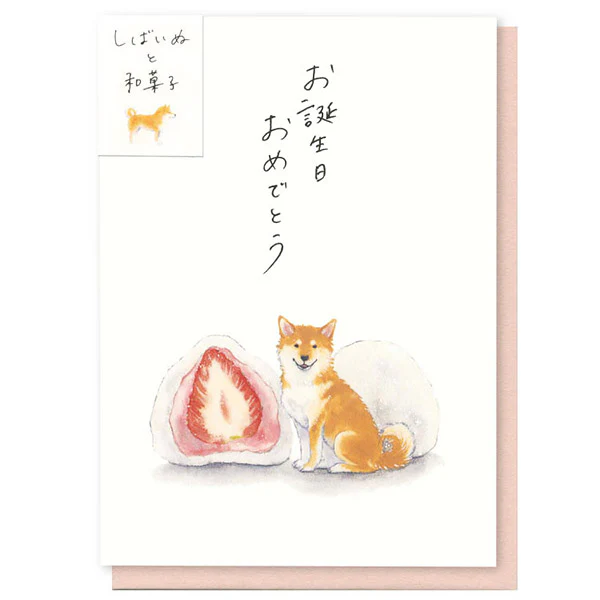 しばいぬ
と
和菓子
お誕生日
おめでとう